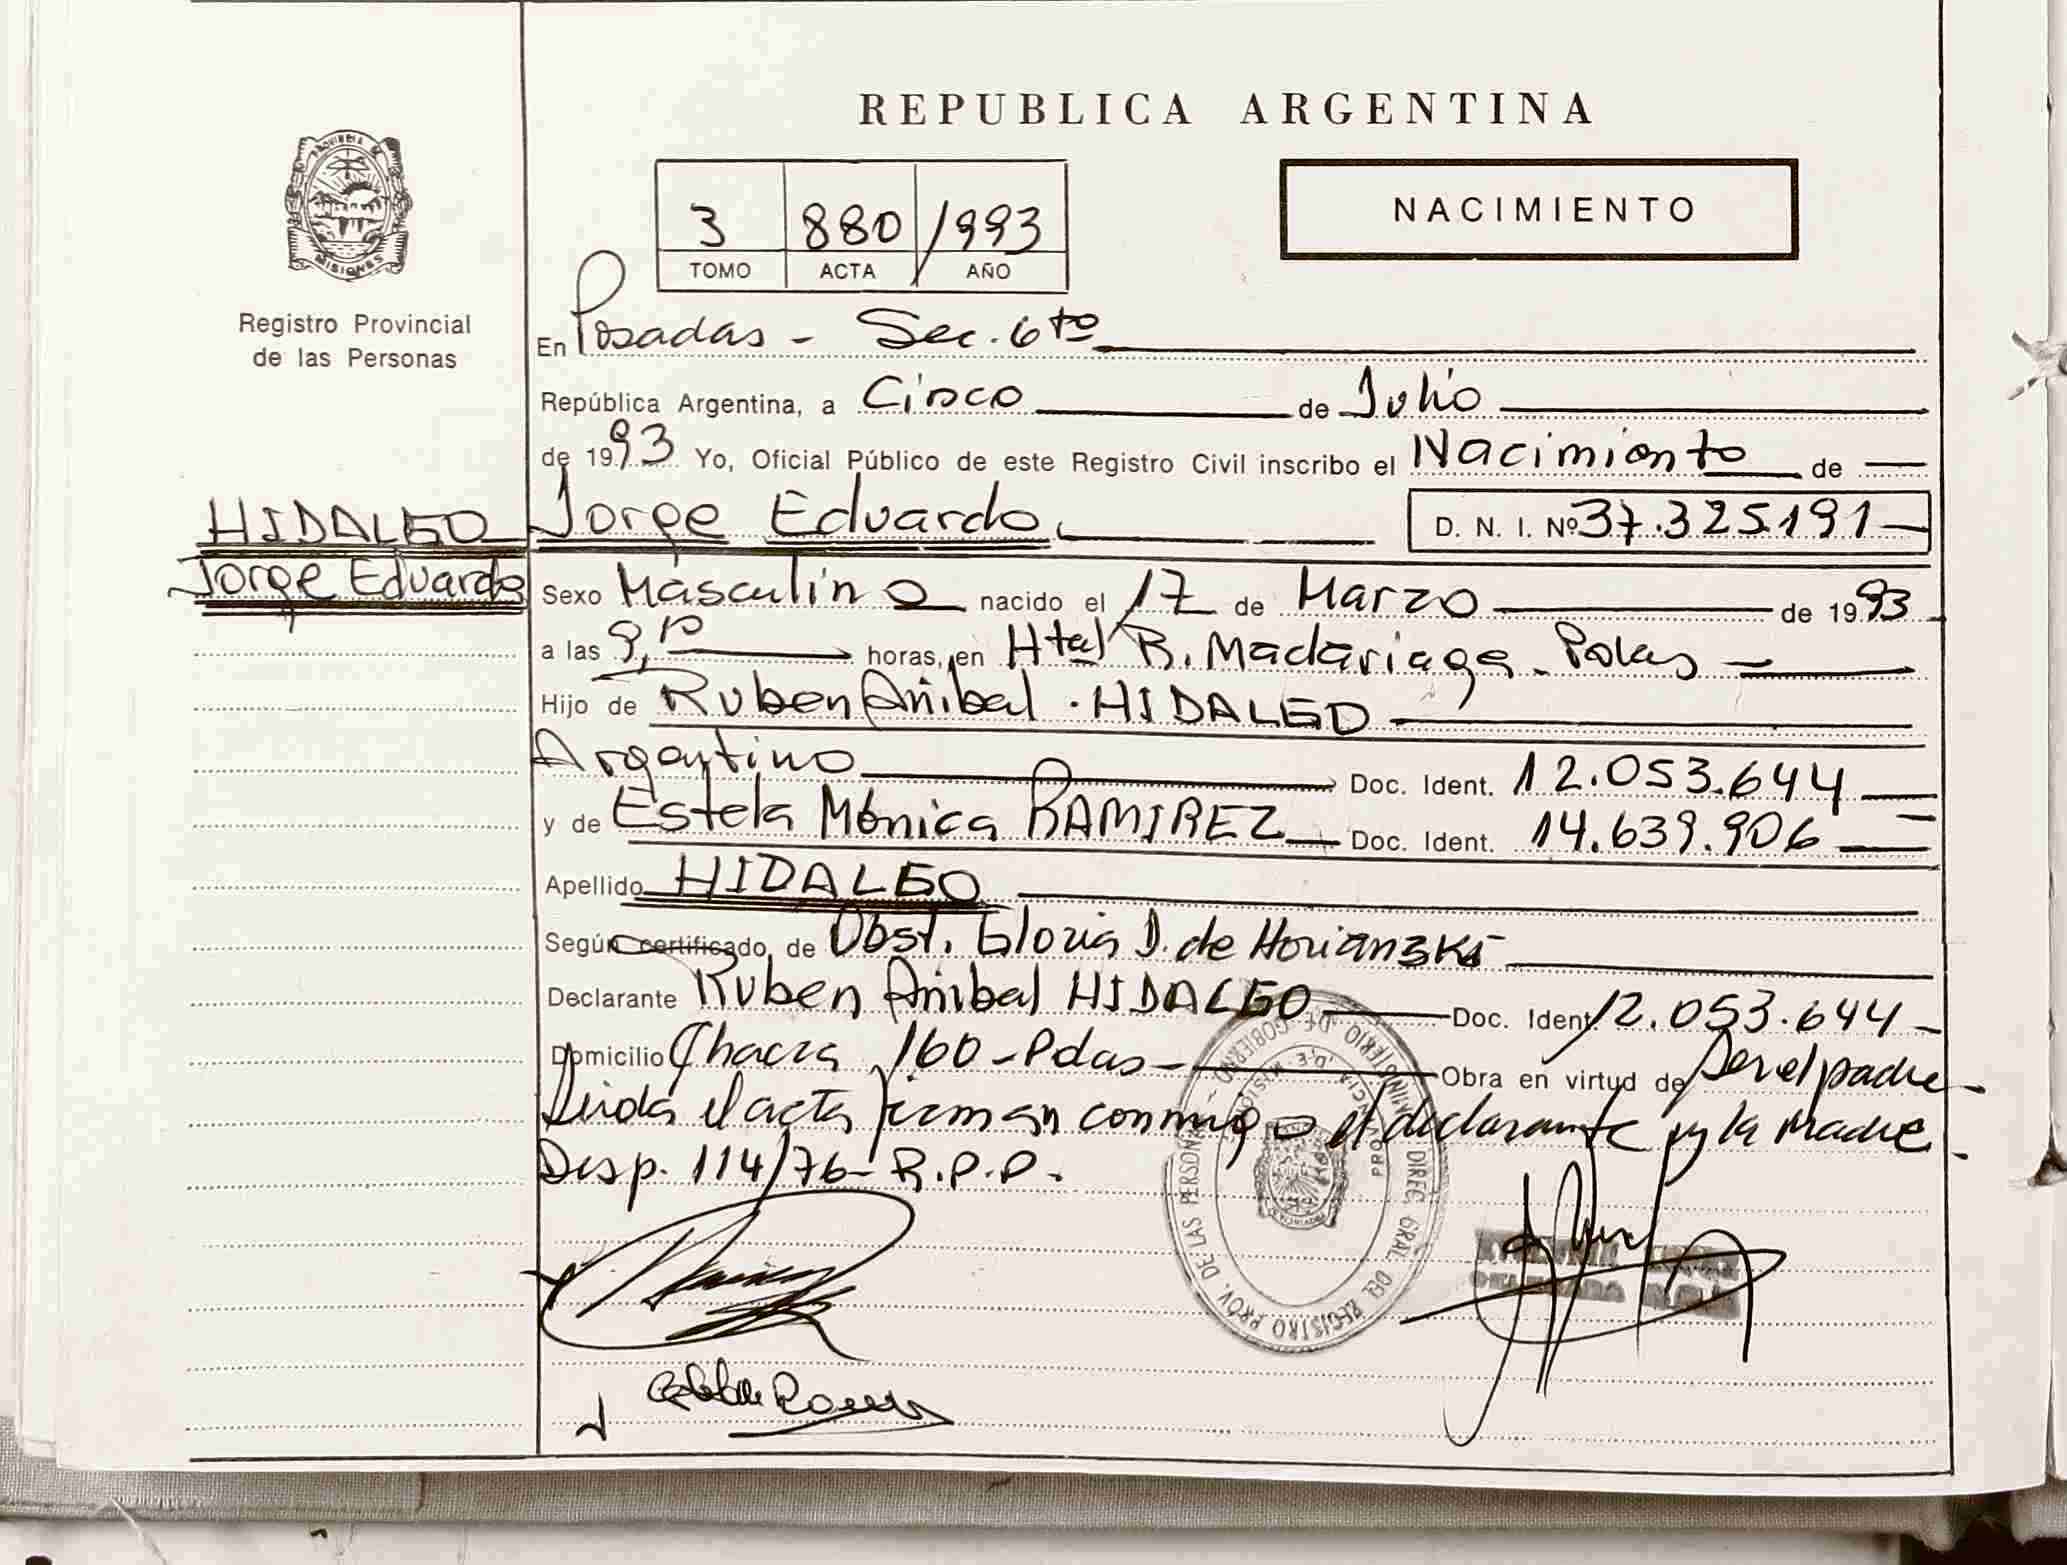 REPUBLICA ARGENTINA
PROVINCIA DE
MISIONES
Registro Provincial
de las Personas
3 880 1993
TOMO ACTA AÑO
NACIMIENTO
En Posadas - Sec. 6to
República Argentina, a Cinco de Julio
de 1993 Yo, Oficial Público de este Registro Civil inscribo el Nacimiento de
HIDALGO
Jorge Eduardo
Jorge Eduardo D. N. I. Nº 37.325.191
Sexo Masculino nacido el 17 de Marzo de 1993
a las 9, horas, en Htal R. Madariaga -
Hijo de Ruben Anibal HIDALGO
Argentino Doc. Ident. 12.053.644
y de Estela Mónica RAMIREZ Doc. Ident. 14.639.906
Apellido HIDALGO
Según certificado, de Obst. Gloria D. de Horianski
Declarante Ruben Anibal HIDALGO Doc. Ident. 12.053.644
Domicilio Chacra 160 - Pdas - Obra en virtud de Ser el padre
Leida el acta firman conmigo el declarante y la Madre
Desp. 114/76 - R.P.P.
MINISTERIO DE GOBIERNO - DIREC. GRAL. DEL REGISTRO PROV. DE LAS PERSONAS
PROVINCIA DE MISIONES